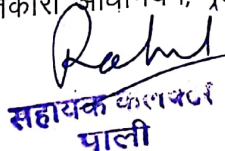 Rahul
सहायक कलक्टर
पाली